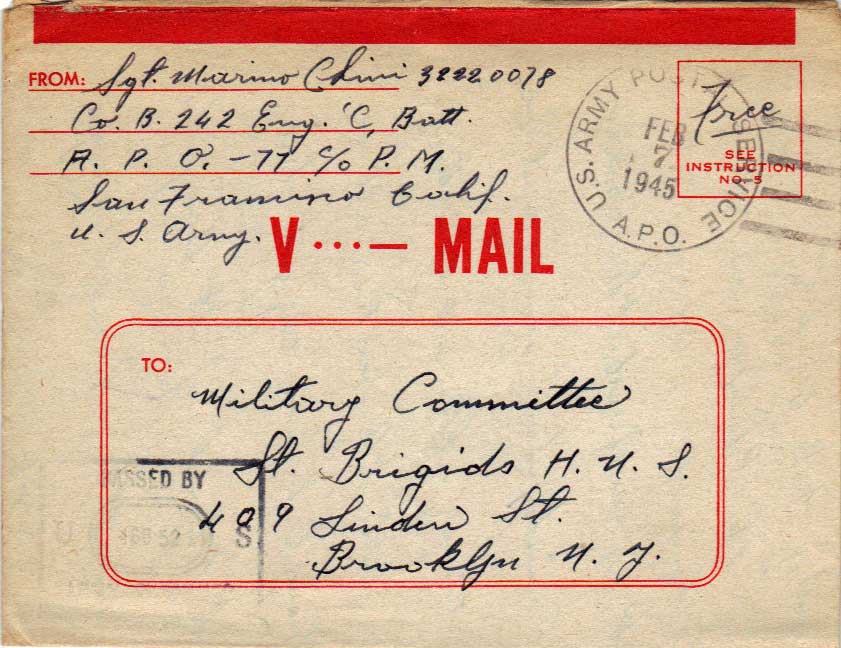 FROM: Sgt. Marino Chini 32220078
Co. B. 242 Eng. 'C, Batt.
A. P. O. - 77 c/o P. M.
San Francisco Calif.
U. S. Army.
U.S. ARMY POSTAL SERVICE
A.P.O.
FEB
7
1945
Free
SEE
INSTRUCTION
NO. 5
V ...— MAIL
TO:
Military Committee
St. Brigids H. N. S.
409 Linden St.
Brooklyn N. Y.
PASSED BY
S